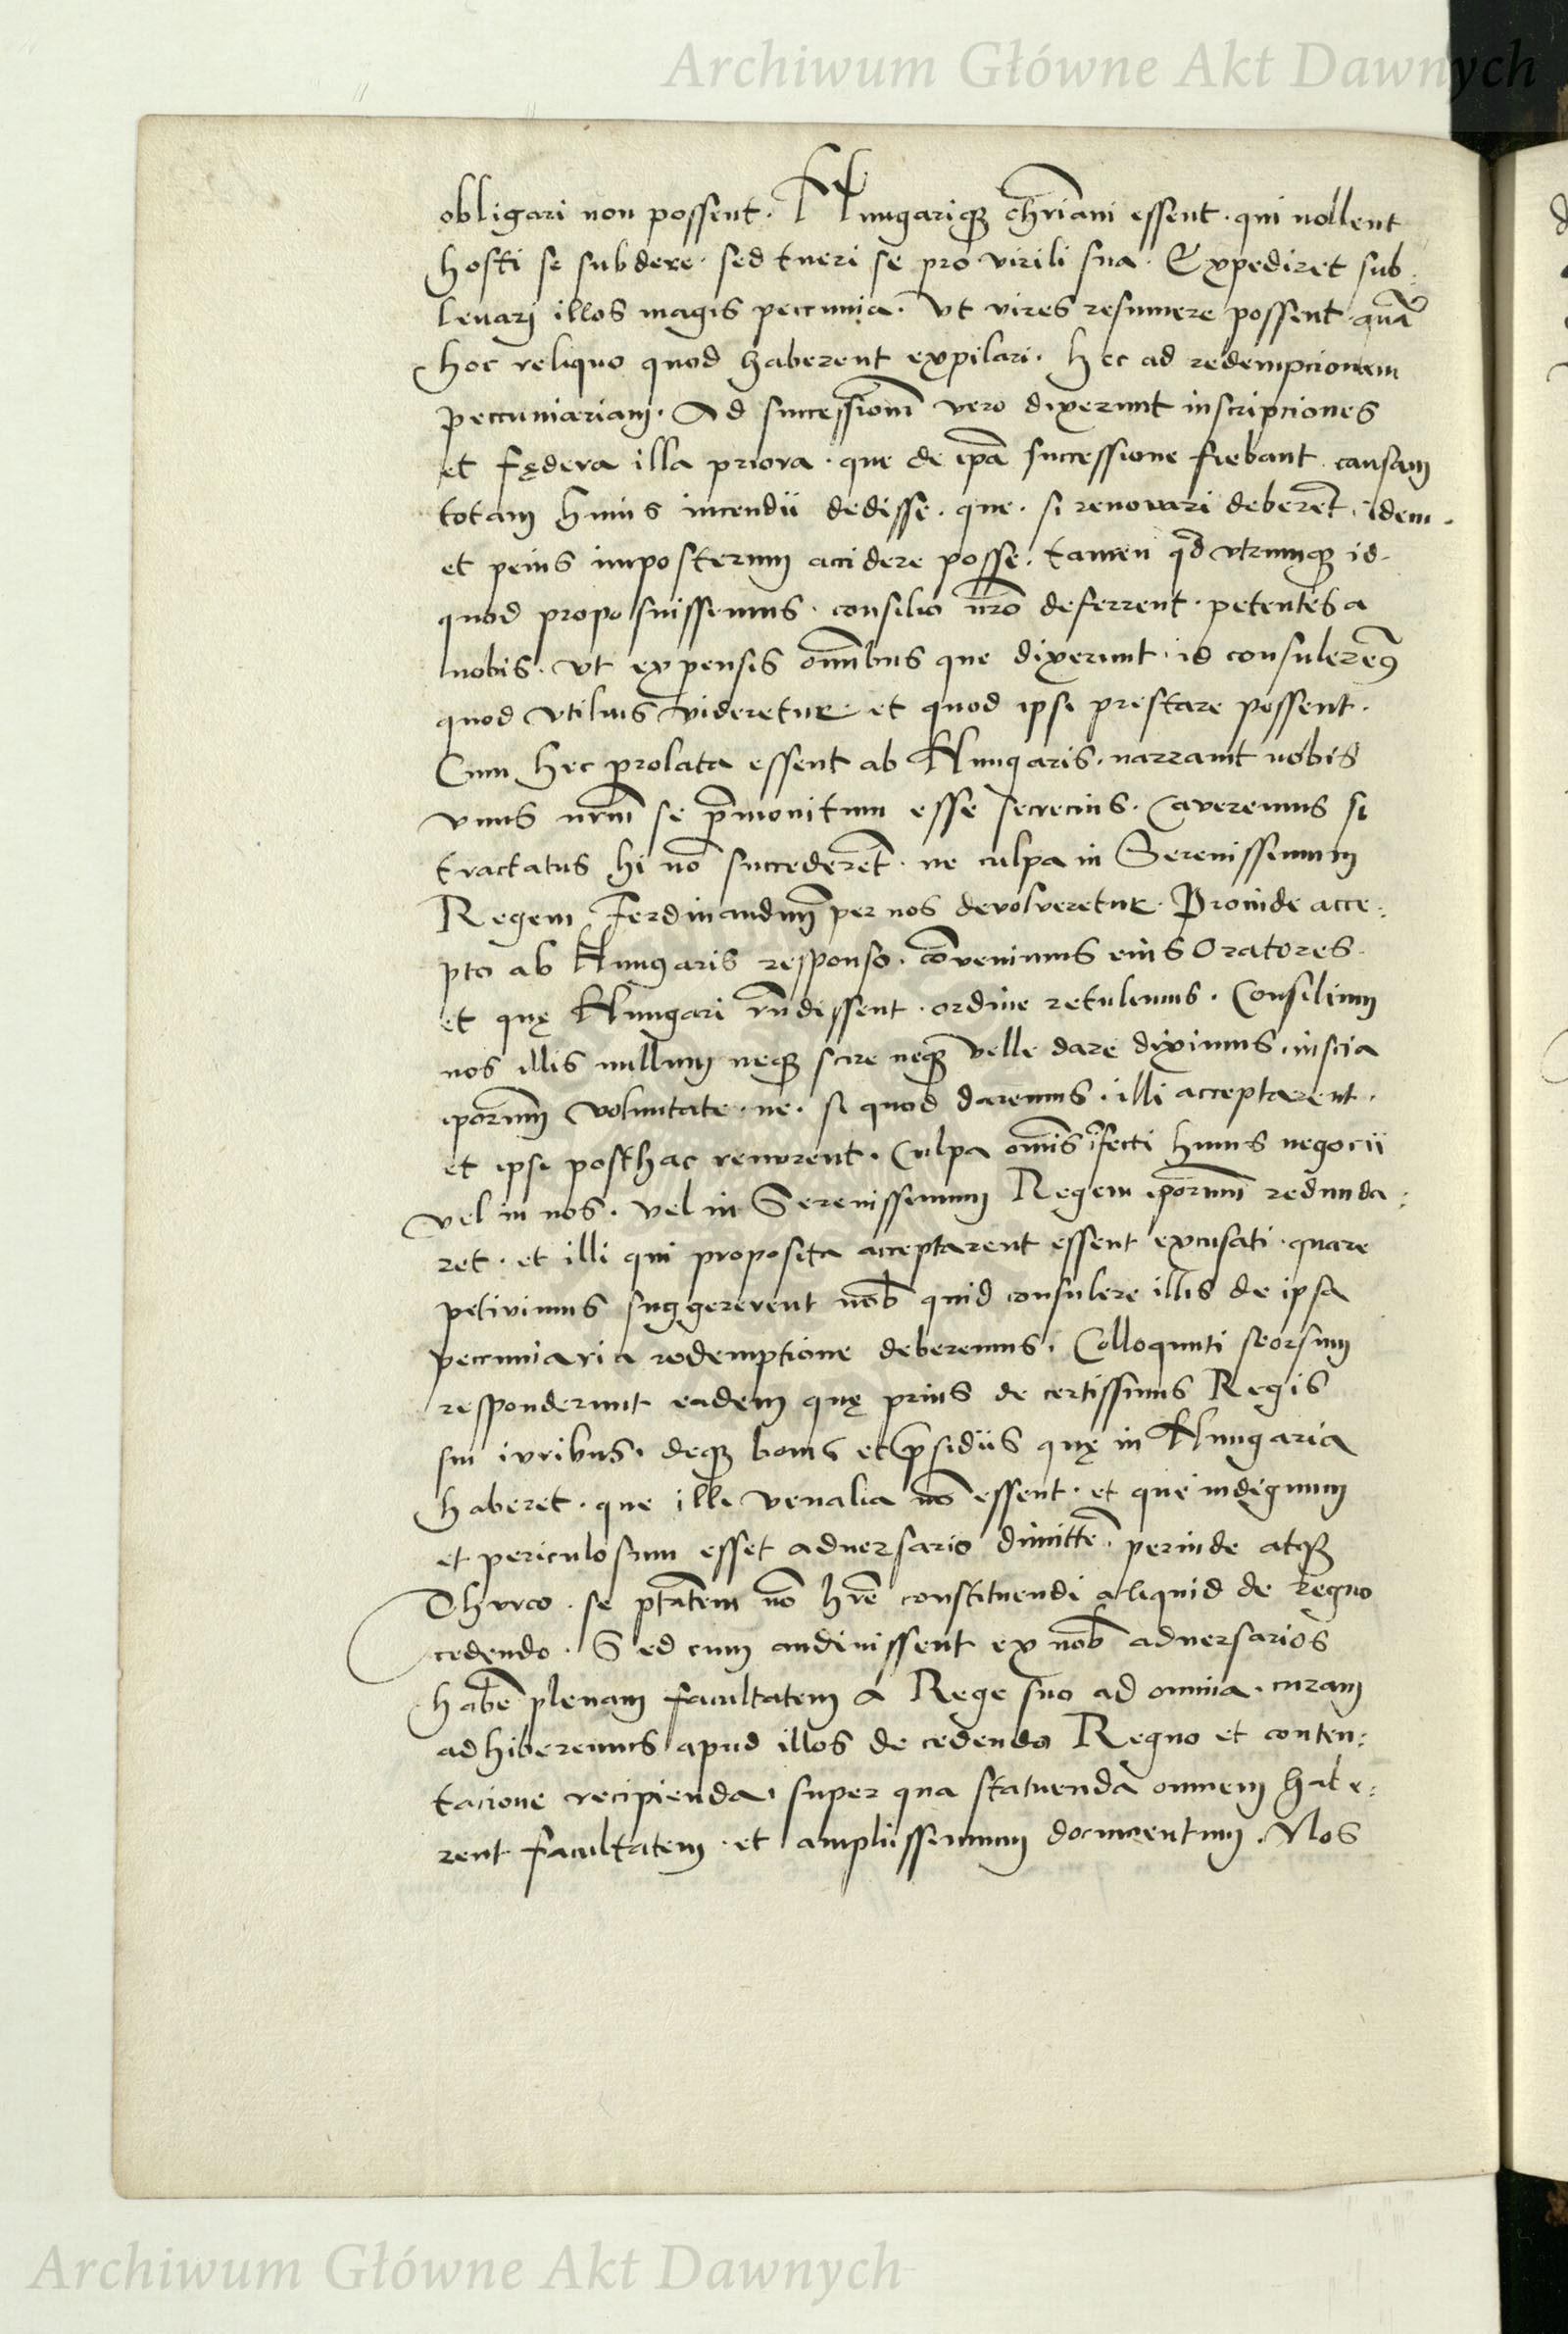 Archiwum Główne Akt Dawnych
obligari non possent. Hungariq3 chr̃iani essent. qui nollent
hosti se subdere. sed tueri se pro virili sua. Expediret sub:
leuarj illos magis peccunia. Vt vires resumere possent quã
hoc reliquo quod haberent expilari. hec ad redempcionem
peccuniariam. Ad successionẽ vero dixerunt inscripciones
et fędera illa priora. que de ip̃a successione fiebant causam
totam huius incendii dedisse. que. si renovari deberẽt, idem.
et peius imposterum accidere posse. tamen qd̃ vtrumq3 id-
quod proposuissemus. consilio nr̃o deferrent. petentes a
nobis. Vt expensis om̃ibus que dixerunt. id consulerem9
quod vtilius videretur et quod ipsi prestare possent.
Cum hec prolata essent ab Hungaris. narrauit nobis
vnus nr̃m se p̃monitum esse secrecius. Caveremus si
tractatus hi nõ succederẽt. ne culpa in Serenissimum
Regem Ferdinandum per nos devolveretur. Proinde acce:
pto ab Hungaris responso. cõvenimus eius Oratores.
et quę Hungari rñdissent. ordine retulimus. Consilium
nos illis nullum neq3 scire neq3 velle dare diximus. inscia
ip̃orum voluntate. ne. si quod daremus. illi acceptarent.
et ipsi posthac renuerent. Culpa om̃is ĩfecti huius negocii
vel in nos. vel in Serenissimum Regem ip̃orum redunda:
ret. et illi qui proposita acceptarent essent excusati. quare
petivimus suggererent nob̃ quid consulere illis de ipsa
peccuniaria redemptione deberemus. Colloquuti seorsum
responderunt eadem quę prius de certissimis Regis
sui iuribus. deq3 bonis et p̃sidiis quę in Hungaria
haberet. que illi venalia nõ essent. et que indignum
et periculosum esset aduersario dimittẽ. perinde atq3
Thurco. se pt̃atem nõ hr̃e constituendi aliquid de regno
cedendo. Sed cum audiuissent ex nob̃ aduersarios
habẽ plenam facultatem a Rege suo ad omnia. curam
adhiberemus apud illos de cedendo Regno et conten:
tacione recipienda. super qua statuenda omnem habe:
rent facultatem. et amplissimum documentum. Nos
Archiwum Główne Akt Dawnych